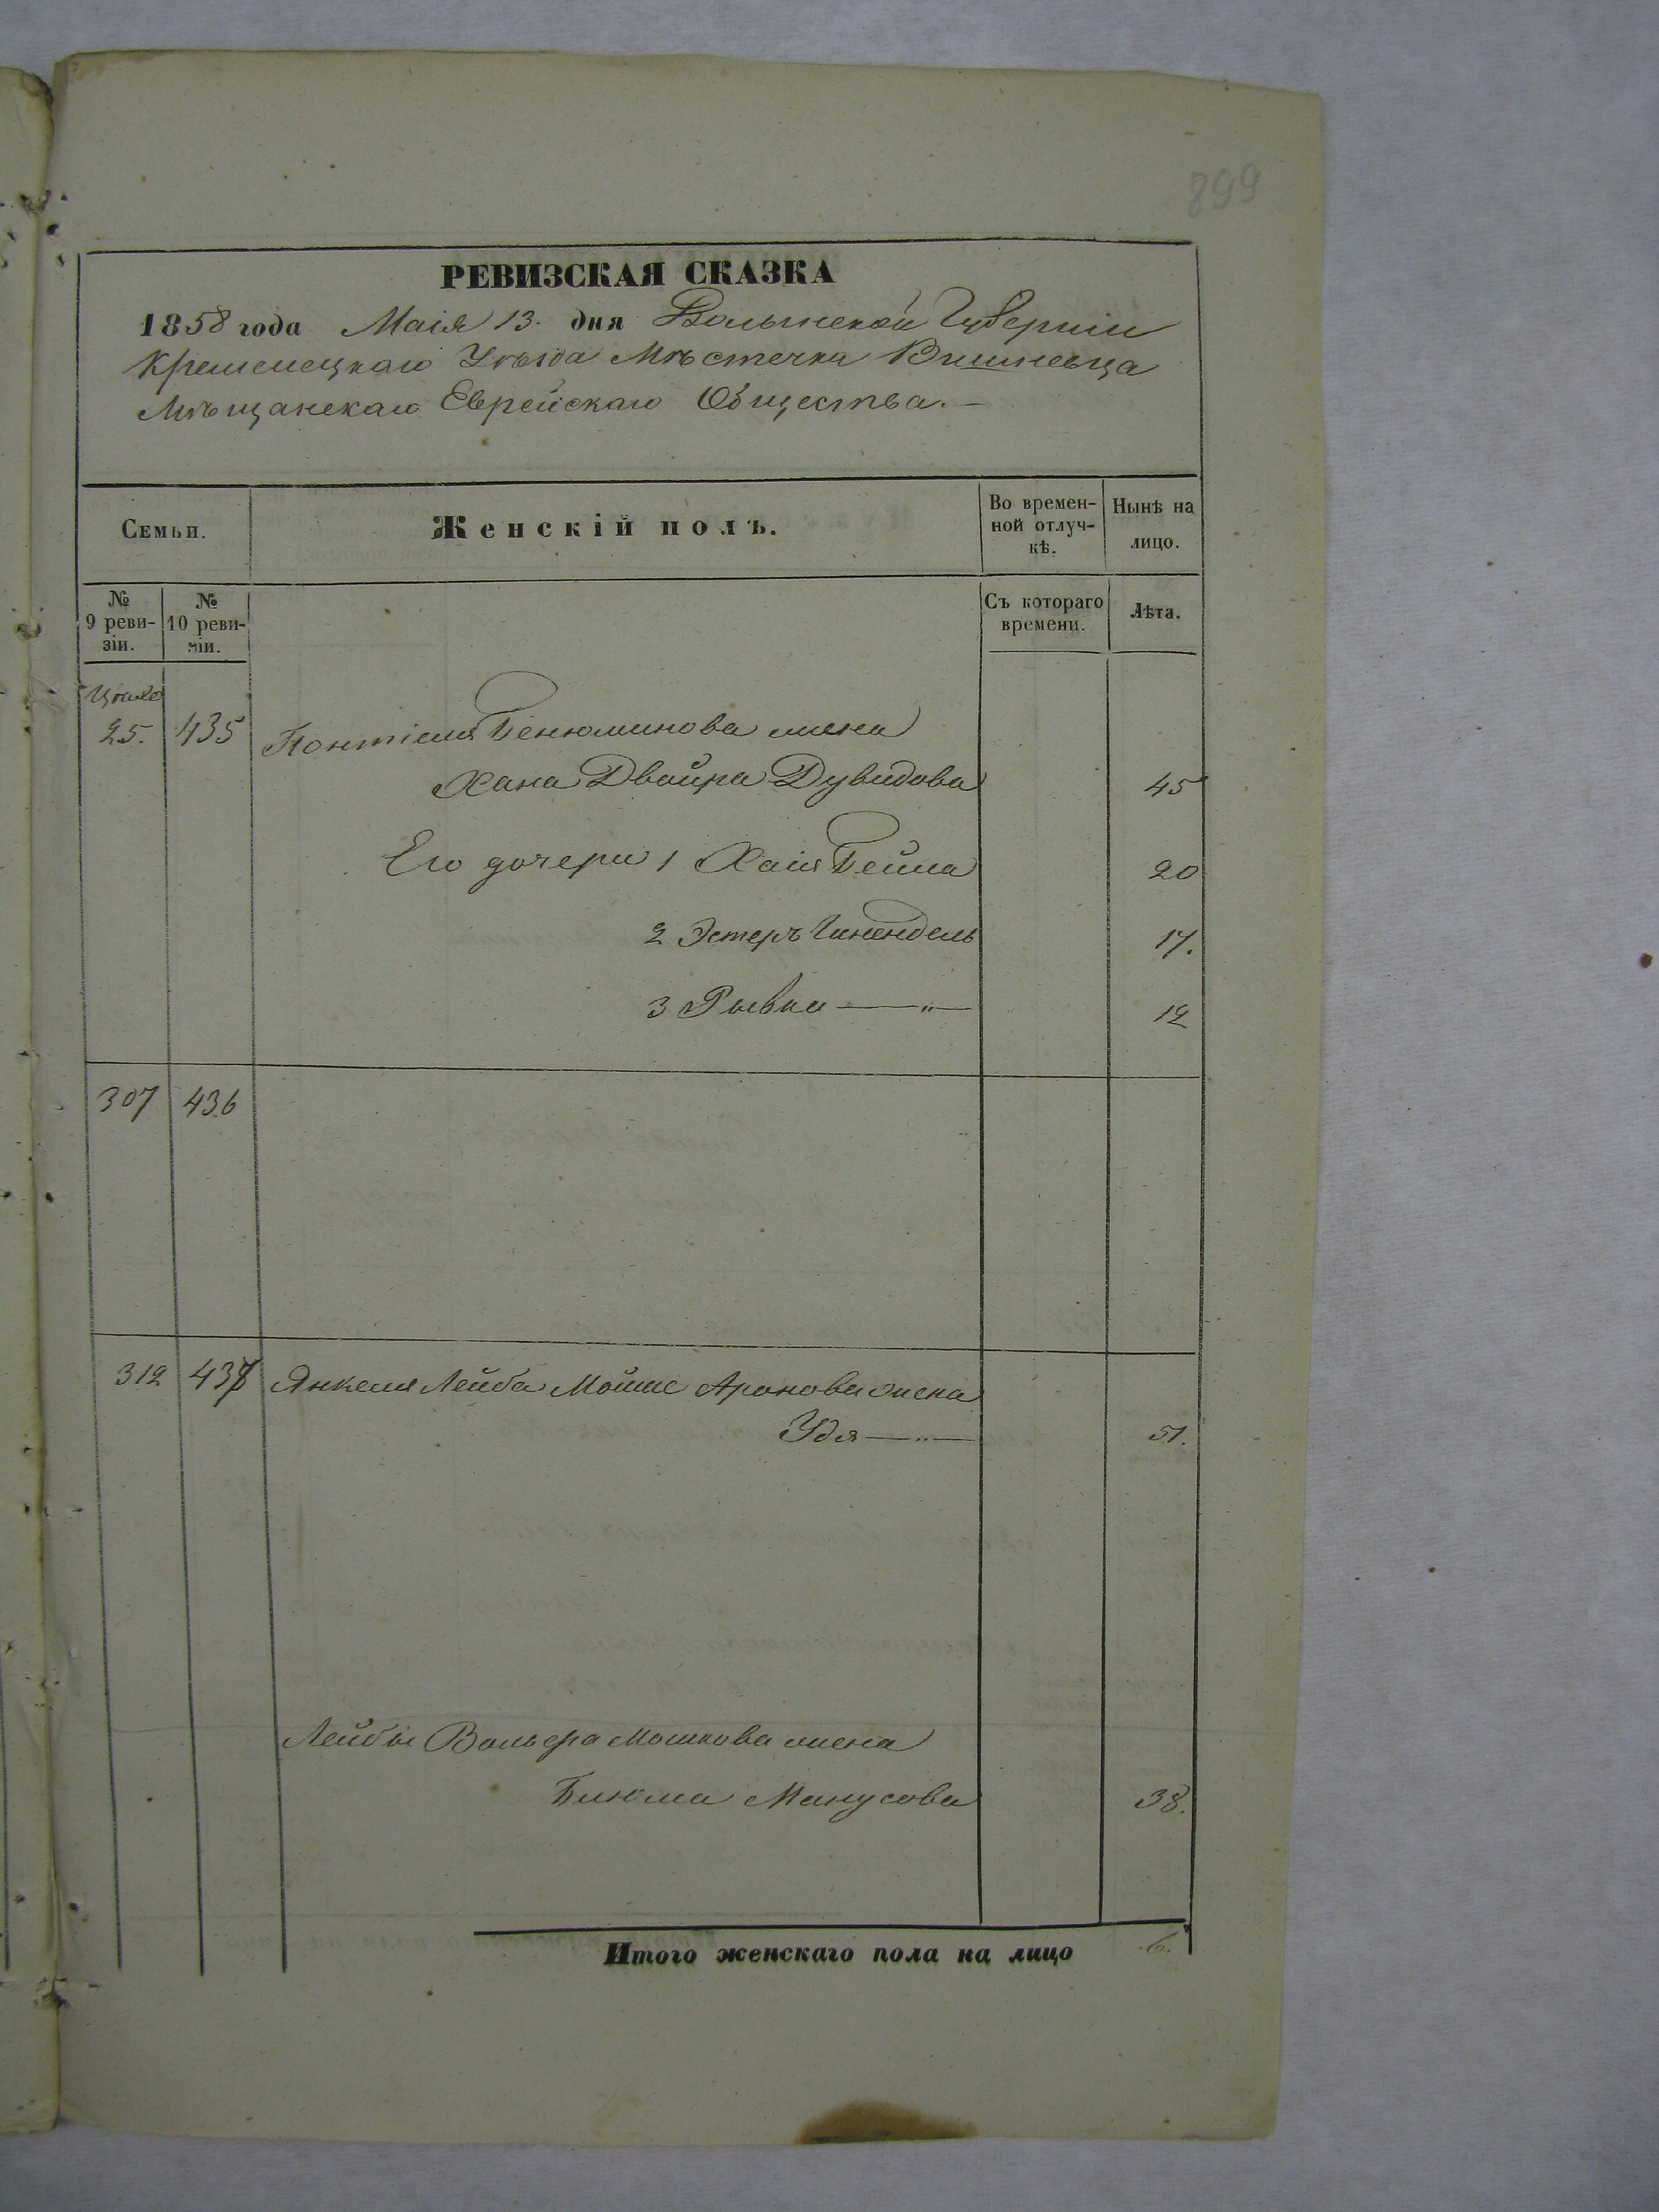 899
РЕВИЗСКАЯ СКАЗКА
1858 года Маія 13. дня Волынской Губерніи
Кременецкаго Уѣзда Мѣстечка Вишневца
Мѣщанскаго Еврейскаго Общества. —
Семьи.
Женскій полъ.
Во времен-
ной отлуч-
кѣ.
Нынѣ на
лицо.
№
9 реви-
зіи.
№
10 реви-
зіи.
Съ котораго
времени.
Лѣта.
25. 435 Бенюминова жена
Хана Двойра Дувидова 45
Его дочери 1 Хаія Бейла 20
2 Эстеръ Гинендель 17.
3 Рывка —„— 12
307 436
312 437 Янкеля Лейба Мошке Аронова жена
Удя —„— 51.
Лейбы Вольфа Мошкова жена
Блюма Манусова 38.
Итого женскаго пола на лицо 6.